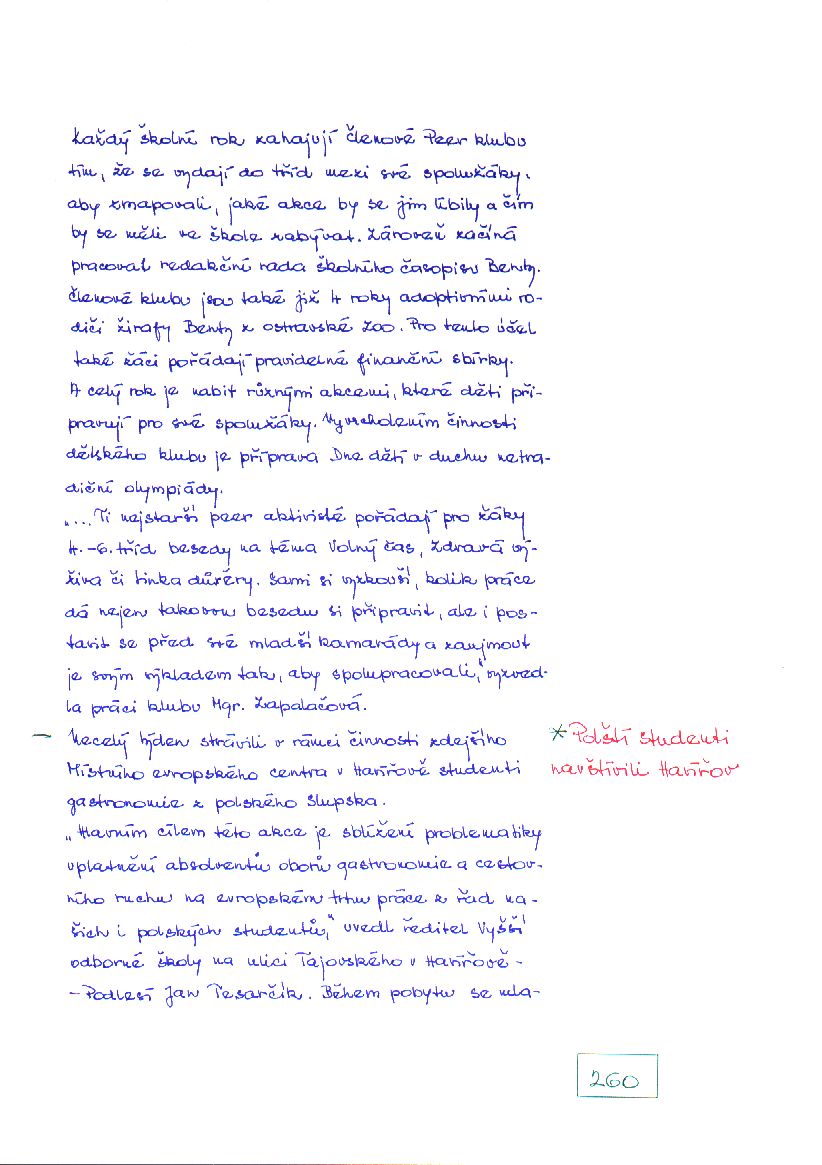 Každý školní rok zahajují členové Peer klubu
tím, že se vydají do tříd mezi své spolužáky,
aby zmapovali, jaké akce by se jim líbily a čím
by se měli ve škole zabývat. Zároveň začíná
pracovat redakční rada školního časopisu Benty.
Členové klubu jsou také již 4 roky adoptivními ro-
diči žirafy Benty z ostravské zoo. Pro tento účel
také žáci pořádají pravidelné finanční sbírky.
A celý rok je nabit různými akcemi, které děti při-
pravují pro své spolužáky. Vyvrcholením činnosti
dětského klubu je příprava Dne dětí v duchu netra-
diční olympiády.
„...Ti nejstarší peer aktivisté pořádají pro žáky
4.-6. tříd besedy na téma Volný čas, Zdravá vý-
živa či linka důvěry. Sami si vyzkouší, kolik práce
dá nejen takovou besedu si připravit, ale i pos-
tavit se před své mladší kamarády a zaujmout
je svým výkladem tak, aby spolupracovali," vyzved-
la práci klubu Mgr. Zapalačová.
- Necelý týden strávili v rámci činnosti zdejšího
* Polští studenti
Místního evropského centra v Havířově studenti
navštívili Havířov
gastronomie z polského Slupska.
„Hlavním cílem této akce je sblížení problematiky
uplatnění absolventů oborů gastronomie a cestov-
ního ruchu na evropském trhu práce z řad na-
šich i polských studentů," uvedl ředitel Vyšší
odborné školy na ulici Tajovského v Havířově -
- Podlesí Jan Tesarčík. Během pobytu se mla-
260